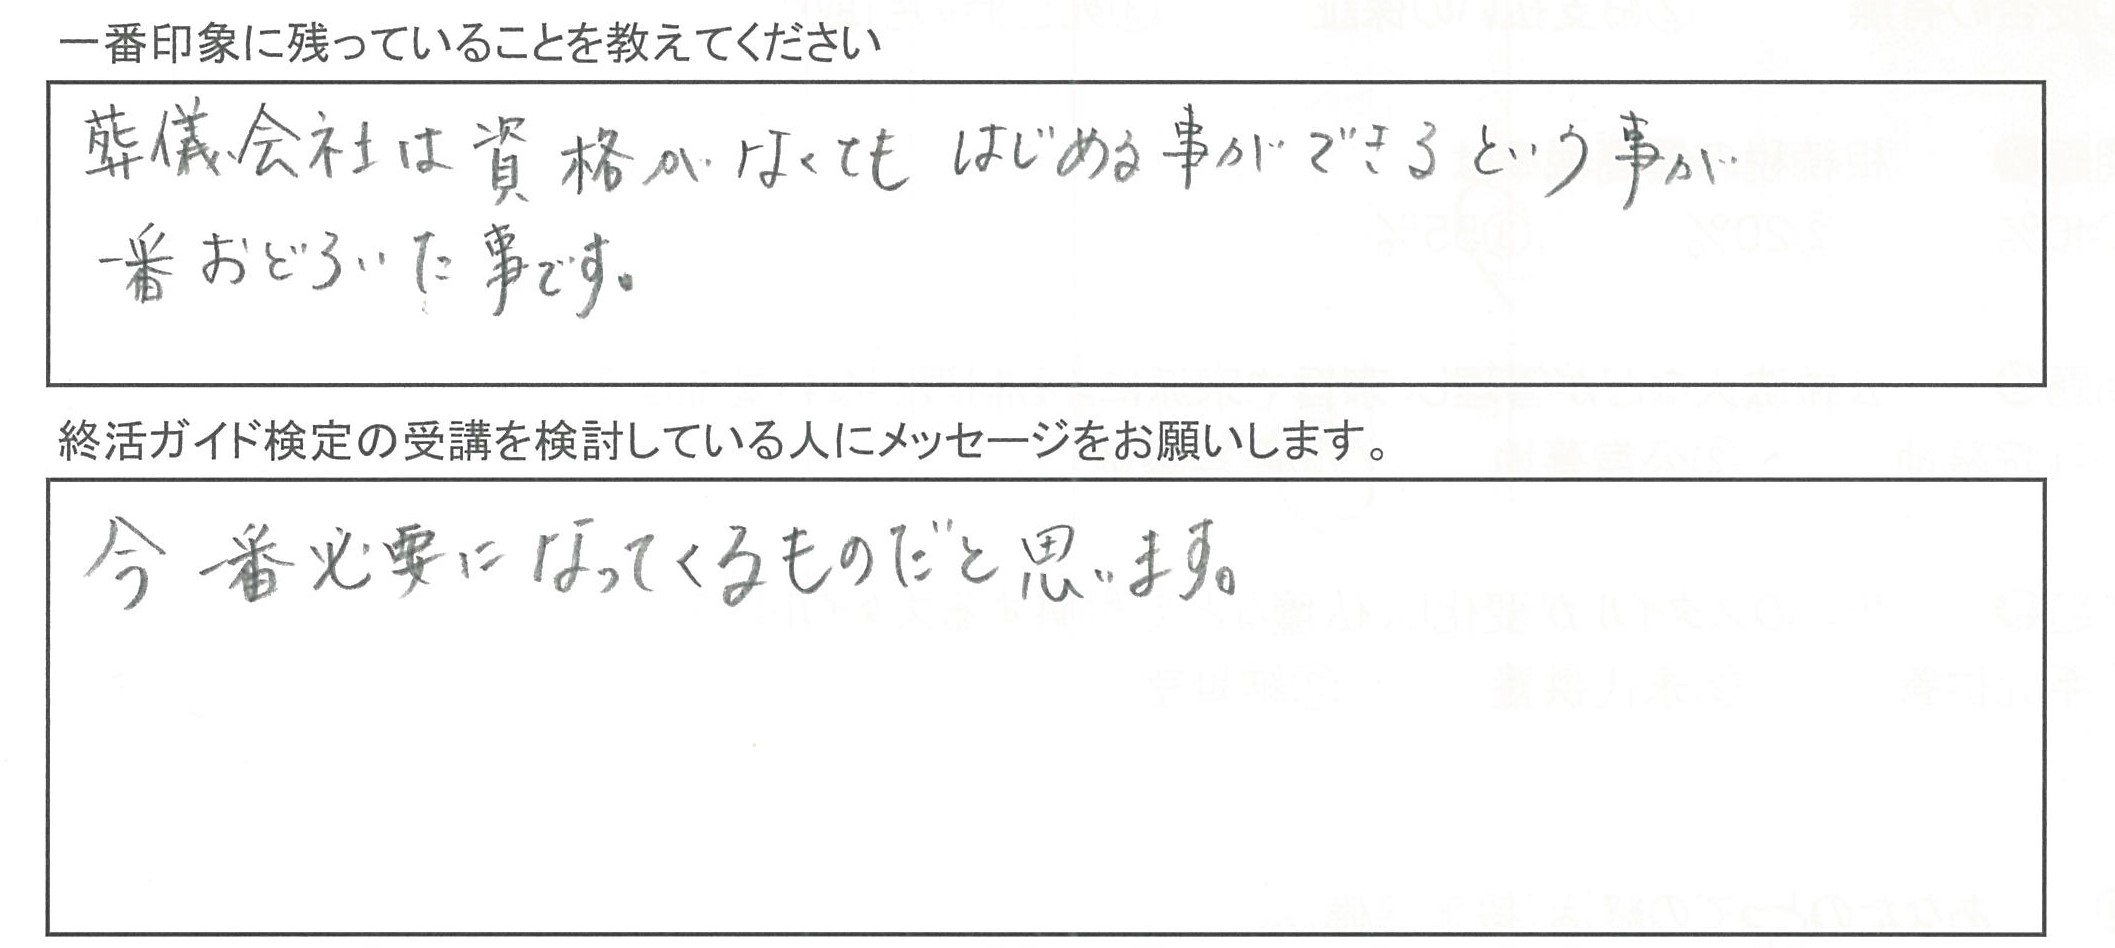 一番印象に残っていることを教えてください
葬儀会社は資格がなくても はじめる事ができるという事が
一番おどろいた事です。
終活ガイド検定の受講を検討している人にメッセージをお願いします。
今一番必要になってくるものだと思います。